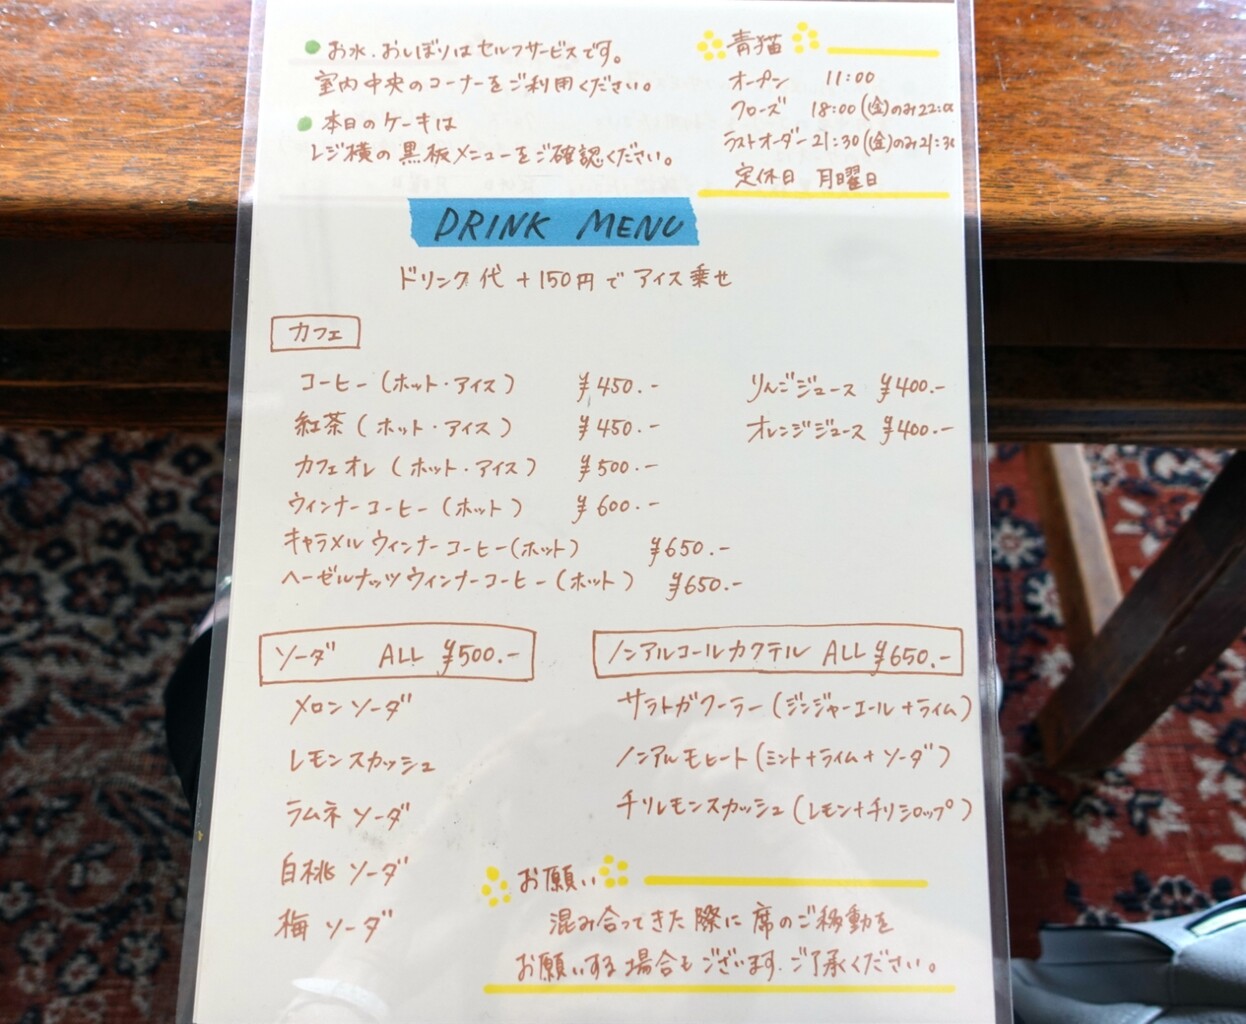 お水、おしぼりはセルフサービスです。
室内中央のコーナーをご利用ください。
本日のケーキは
レジ横の黒板メニューをご確認ください。
青猫
オープン 11:00
クローズ 18:00(金)のみ22:00
ラストオーダー21:30(金)のみ21:30
定休日 月曜日
DRINK MENU
ドリンク代+150円でアイス乗せ
カフェ
コーヒー(ホット・アイス) ¥450.-
紅茶(ホット・アイス) ¥450.-
カフェオレ(ホット・アイス) ¥500.-
ウィンナーコーヒー(ホット) ¥600.-
キャラメルウィンナーコーヒー(ホット) ¥650.-
ヘーゼルナッツウィンナーコーヒー(ホット) ¥650.-
りんごジュース ¥400.-
オレンジジュース ¥400.-
ソーダ ALL ¥500.-
メロンソーダ
レモンスカッシュ
ラムネソーダ
白桃ソーダ
梅ソーダ
ノンアルコールカクテル ALL ¥650.-
サラトガクーラー(ジンジャーエール+ライム)
ノンアルモヒート(ミント+ライム+ソーダ)
チリレモンスカッシュ(レモン+チリシロップ)
お願い
混み合ってきた際に席のご移動を
お願いする場合もございます。ご了承ください。